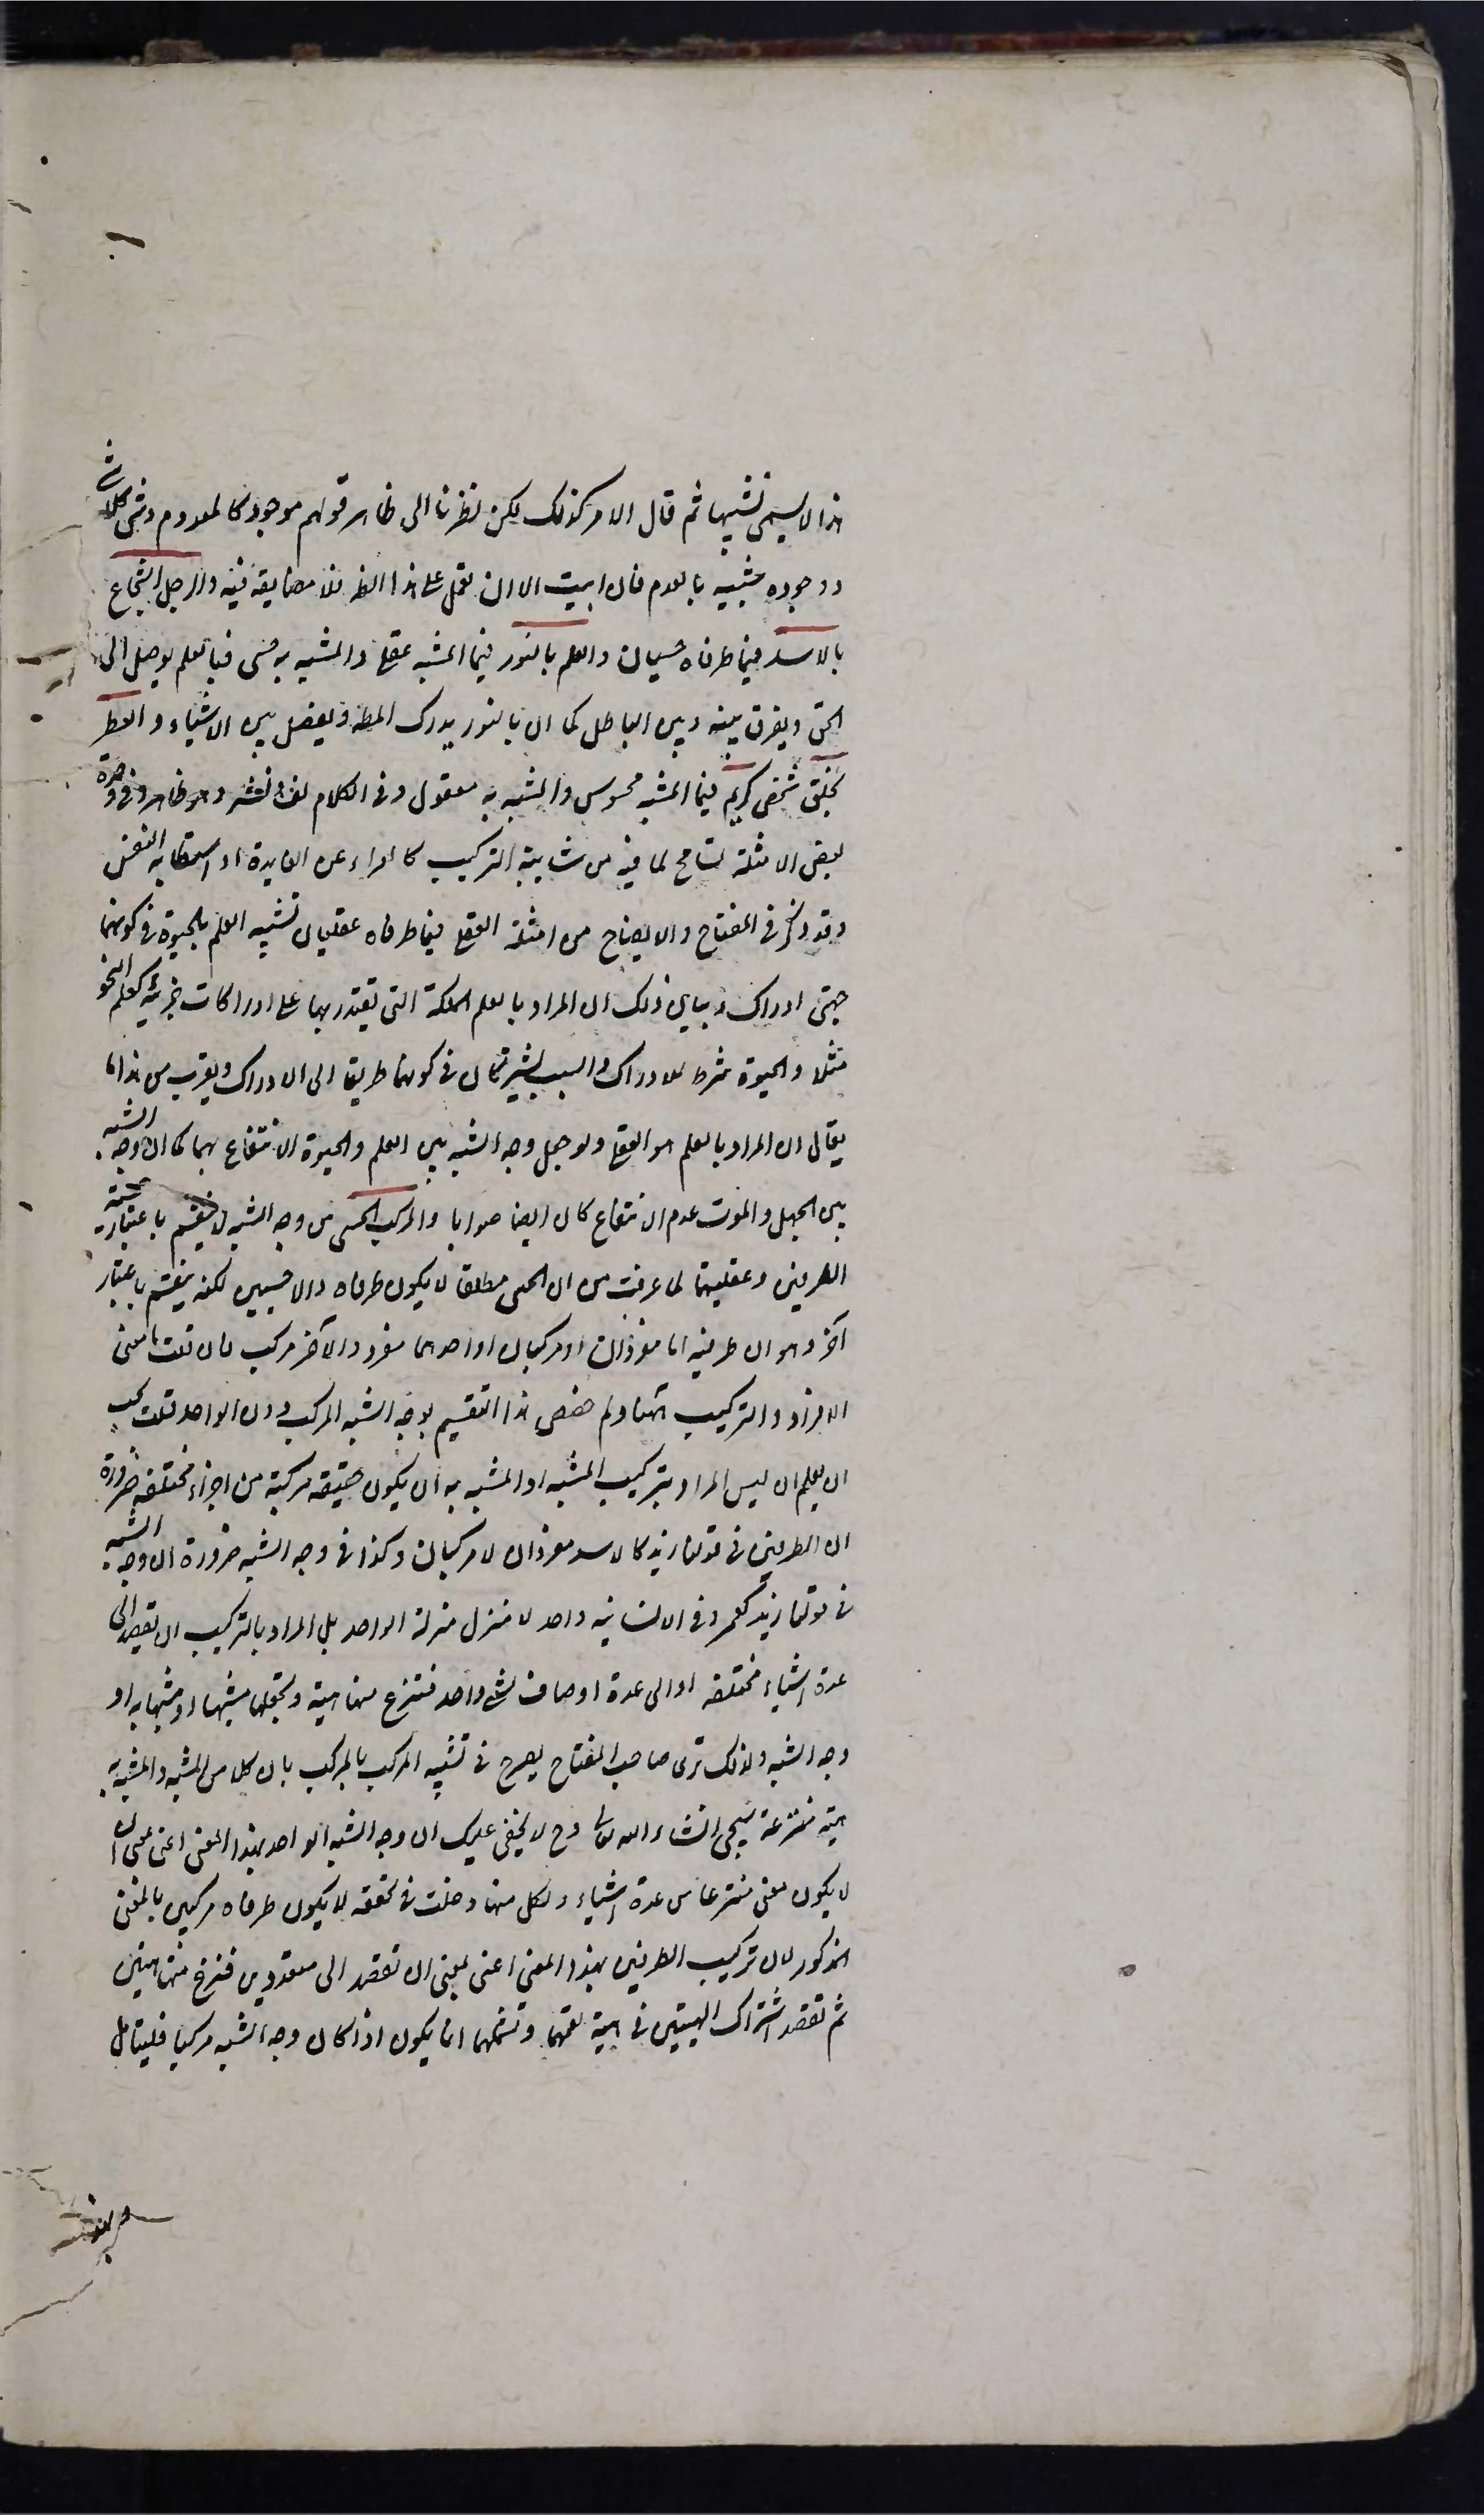 هذا لا يسمى تشبيها ثم قال الامر كذلك لكن نظرنا الى ظاهر قولهم موجود كالمعدوم وشئ كلا شئ
ووجوده شبيه بالعدم فان ابيت الا ان تعمل على هذا الظ فلا مضايقة فيه والرجل الشجاع
بالاسد فيما طرفاه حسيان والعلم بالنور فيما المشبه عقلى والمشبه به حسى فبالعلم يوصل الى
الحق ويفرق بينه وبين الباطل كما ان بالنور يدرك المط ويفصل بين الاشياء والعطر
بخلق شخص كريم فيما المشبه محسوس والمشبه به معقول وفى الكلام لف ونشر وهو ظاهر وفى وحدة
بعض الامثلة تسامح لما فيه من شائبة التركيب كالعراء عن الفايدة او استطابة النفس
وقد ذكر فى المفتاح والايضاح من امثلة العقلى فيما طرفاه عقليان تشبيه العلم بالحيوة فى كونهما
جهتى ادراك وبيان ذلك ان المراد بالعلم الملكة التى تقتدر بها على ادراكات جزئية كعلم النحو
مثلا والحيوة شرط للادراك والسبب يشتركان فى كونهما طريقا الى الادراك ويقرب من هذا ما
يقال ان المراد بالعلم هو العقل ولو جعل وجه الشبه بين العلم والحيوة الانتفاع بهما كما ان وجه الشبه
بين الجهل والموت عدم الانتفاع كان ايضا صوابا والمركب الحسى من وجه الشبه لا ينقسم باعتبار حسية
الطرفين وعقليتهما لما عرفت من ان الحسى مطلقا لا يكون طرفاه الا حسيين لكنه ينقسم باعتبار
آخر وهو ان طرفيه اما مفردان او مركبان او احدهما مفرد والآخر مركب فان قلت ما معنى
الافراد والتركيب ههنا ولم خصص هذا التقسيم بوجه الشبه المركب دون الواحد قلت يجب
ان يعلم ان ليس المراد بتركيب المشبه او المشبه به ان يكون حقيقة مركبة من اجزاء مختلفة ضرورة
ان الطرفين فى قولنا زيد كالاسد مفردان لا مركبان وكذا فى وجه الشبه ضرورة ان وجه الشبه
فى قولنا زيد كعمرو فى الانسانية واحد لا منزل منزلة الواحد بل المراد بالتركيب ان تقصد الى
عدة اشياء مختلفة او الى عدة اوصاف لشئ واحد فتنتزع منها هيئة وتجعلها مشبها او مشبها به او
وجه الشبه ولذلك ترى صاحب المفتاح يصرح فى تشبيه المركب بالمركب بان كلا من المشبه والمشبه به
هيئة منتزعة سيجئ انشاء الله تعالى وح لا يخفى عليك ان وجه الشبه الواحد بهذا المعنى اعنى معنى ان
لا يكون معنى منتزعا من عدة اشياء ولكل منها دخلت فى تحققه لا يكون طرفاه مركبين بالمعنى
المذكور لان تركيب الطرفين بهذا المعنى اعنى بمعنى ان تقصد الى متعددين فتنتزع منهما هيئتين
ثم تقصد اشتراك الهيئتين فى هيئة تعمهما وتشملهما انما يكون اذا كان وجه الشبه مركبا فليتامل